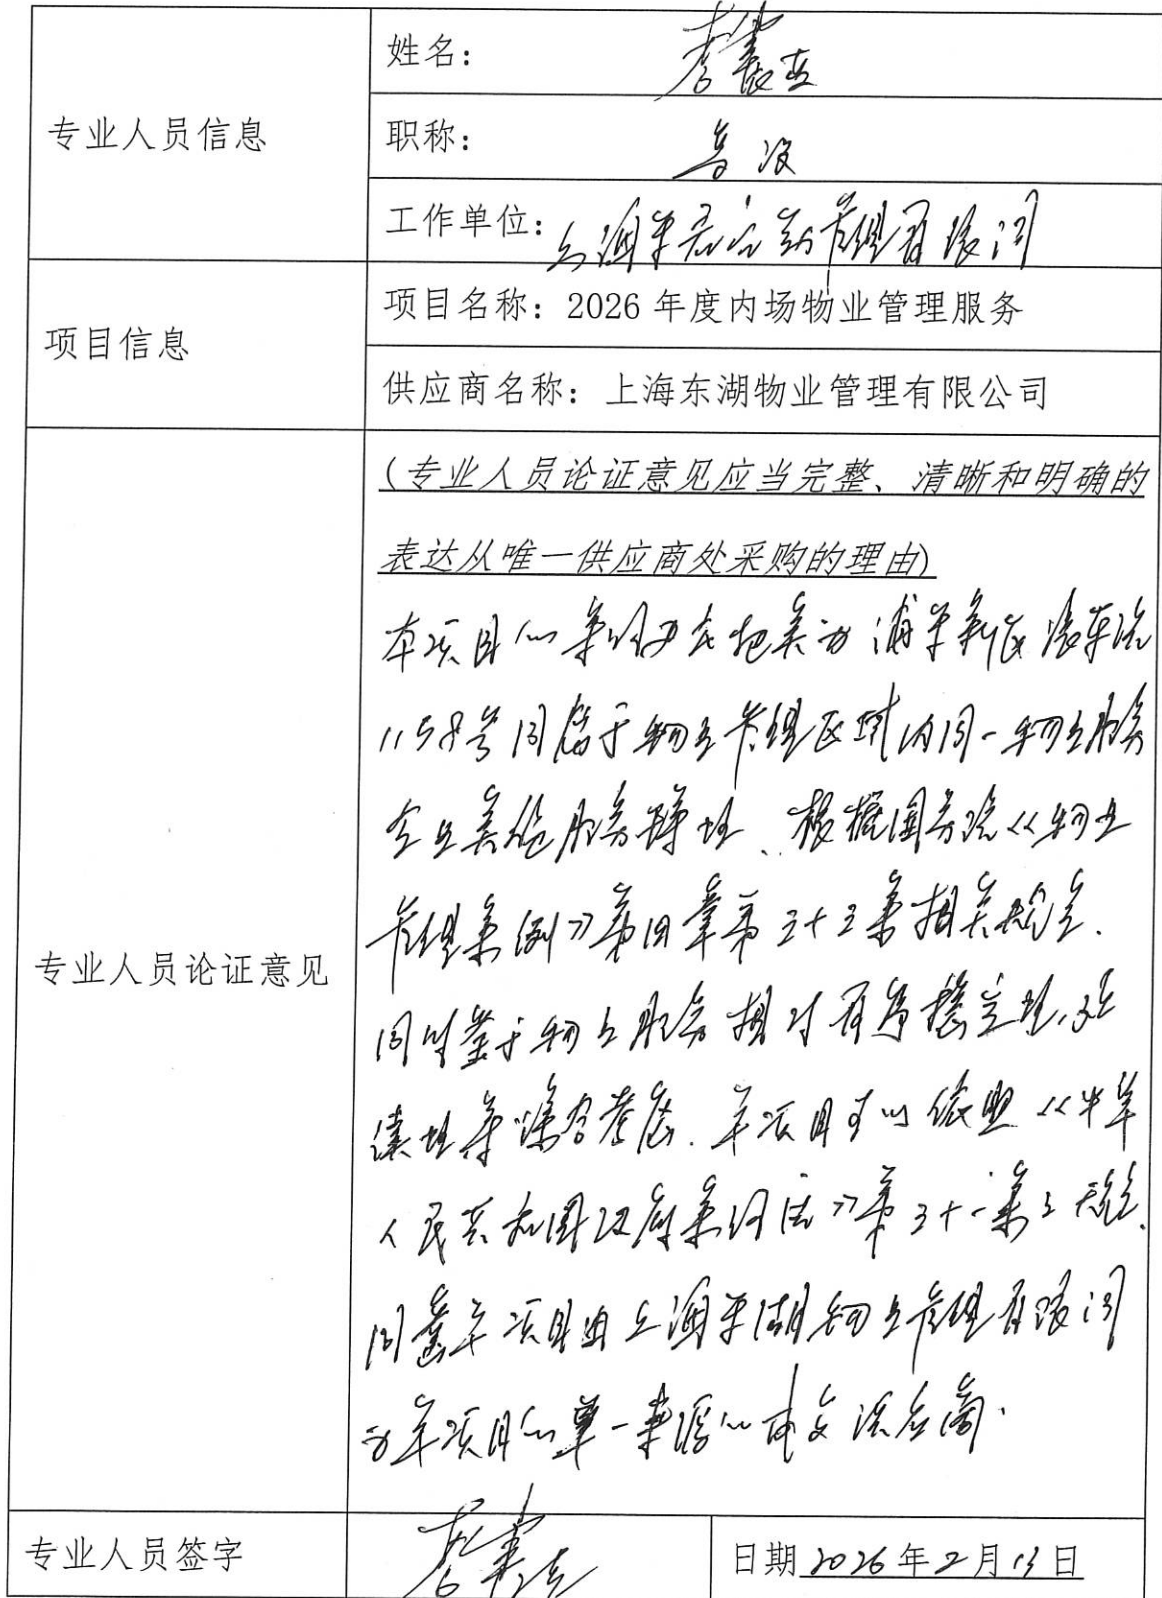 专业人员信息
姓名：
职称：高级
工作单位：上海 管理有限公司
项目信息
项目名称：2026 年度内场物业管理服务
供应商名称：上海东湖物业管理有限公司
专业人员论证意见
(专业人员论证意见应当完整、清晰和明确的
表达从唯一供应商处采购的理由)
本项目的采购 浦东新区浪东路
1158号同属于物业管理区域内同一物业服务
企业 服务 根据国务院《物业
管理条例》第四章第三十三条相关规定.
同时鉴于物业服务相对有 稳定性,延
续性等综合考虑.本项目可以依照《中华
人民共和国政府采购法》第三十一条之规定.
同意本项目由上海东湖物业管理有限公司
为本项目的单一来源的 供应商.
专业人员签字
日期 2026 年 2 月 13 日